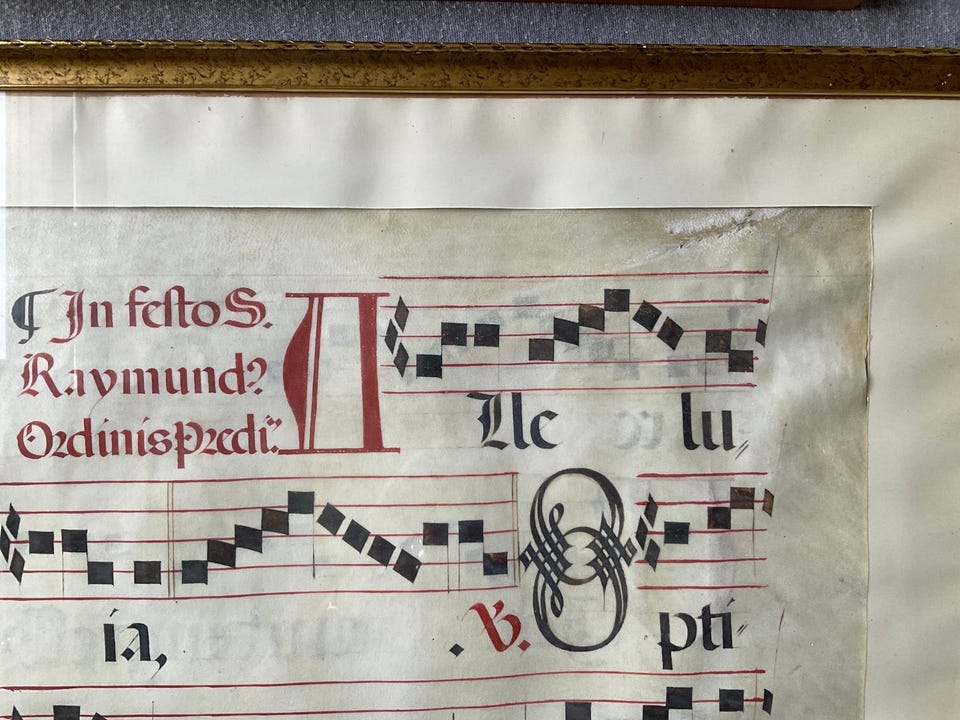 ¶ In festo S.
Raymundꝰ
Ordinis predi.
Alle lu
ia, . ℣. Opti